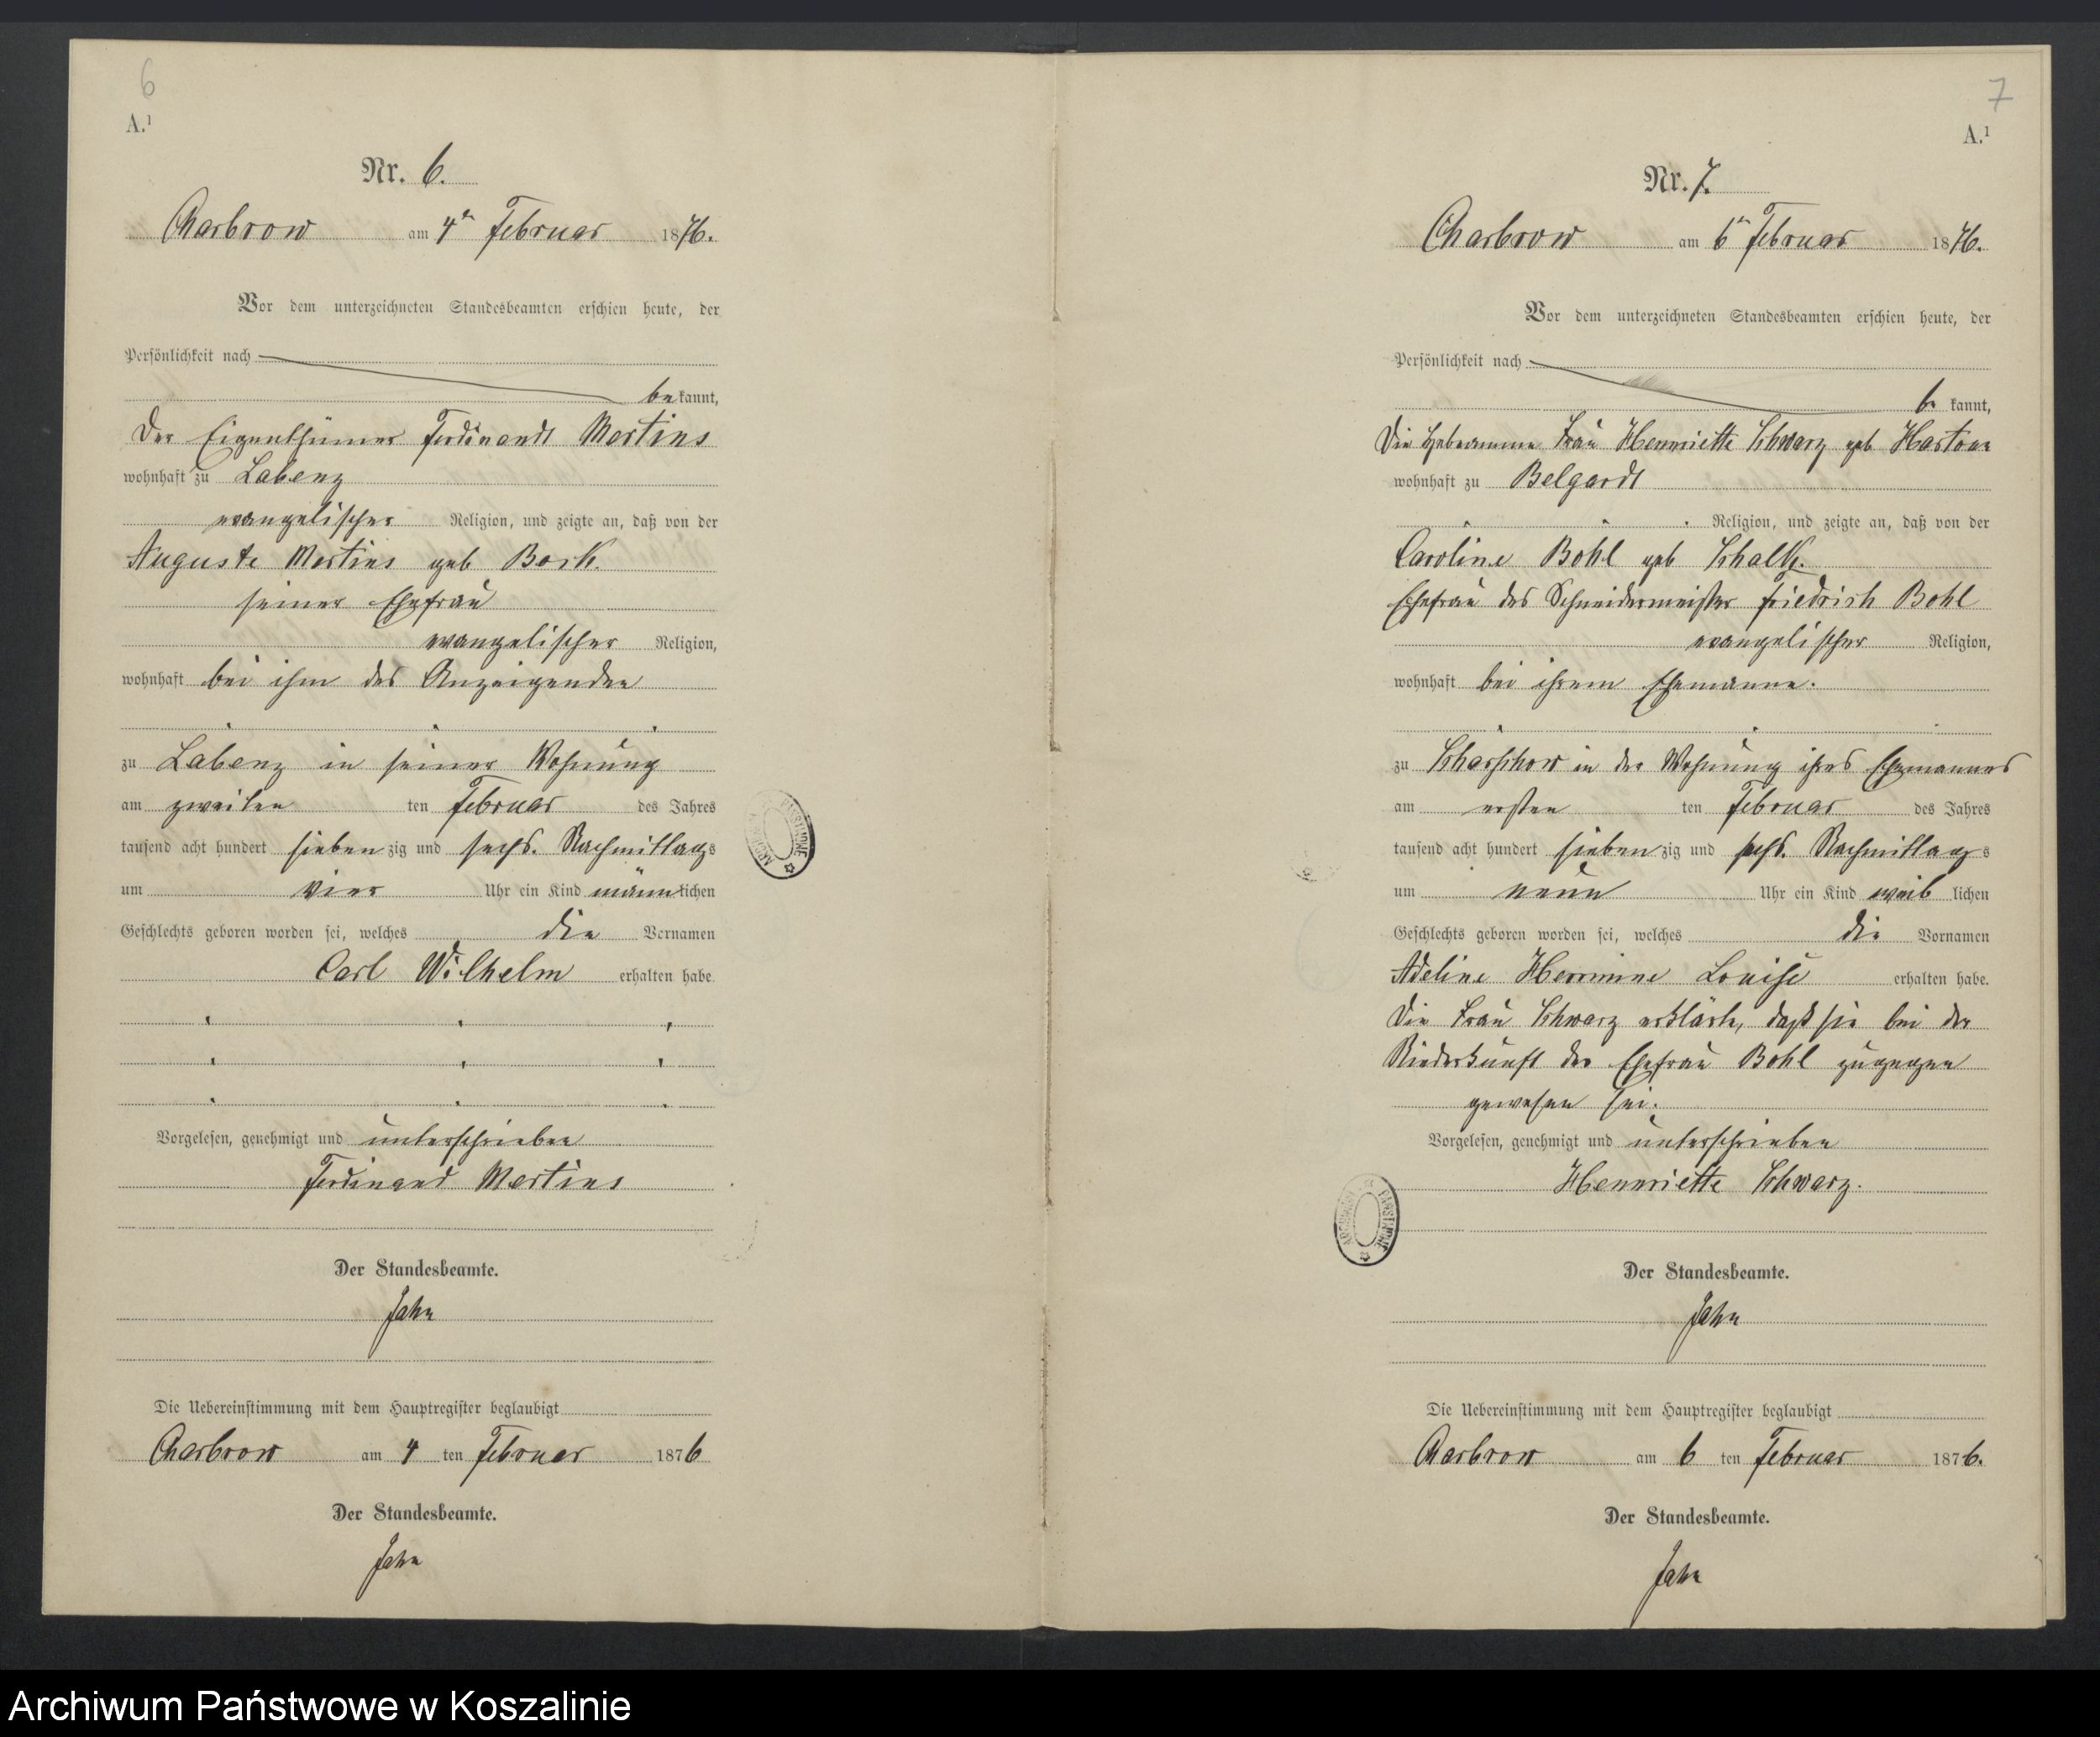 6
A.¹
Nr. 6.
Charbrow am 4ᵗᵉⁿ Februar 1876.
Vor dem unterzeichneten Standesbeamten erschien heute, der
Persönlichkeit nach
bekannt,
der Eigenthümer Ferdinandt Martins
wohnhaft zu Labenz
evangelischer Religion, und zeigte an, daß von der
Auguste Martins geb Bork.
seiner Ehefrau
evangelischer Religion,
wohnhaft bei ihm des Anzeigenden
zu Labenz in seiner Wohnung
am zweiten ten Februar des Jahres
tausend acht hundert siebenzig und sechs. Nachmittags
um vier Uhr ein Kind männlichen
Geschlechts geboren worden sei, welches die Vornamen
Carl Wilhelm erhalten habe
Vorgelesen, genehmigt und unterschrieben
Ferdinand Martins
Der Standesbeamte.
Jahn
Die Uebereinstimmung mit dem Hauptregister beglaubigt
Charbrow am 4 ten Februar 1876
Der Standesbeamte.
Jahn
7
A.¹
Nr. 7.
Charbrow am 6ᵗᵉⁿ Februar 1876.
Vor dem unterzeichneten Standesbeamten erschien heute, der
Persönlichkeit nach
be kannt,
Die Hebeamme Frau Henriette Schwarz geb
wohnhaft zu Belgardt
Religion, und zeigte an, daß von der
Caroline Bohl geb Schalk.
Ehefrau des Schneidermeister Friedrich Bohl
evangelischer Religion,
wohnhaft bei ihrem Ehemanne.
zu Scharschow in der Wohnung ihres Ehemannes
am ersten ten Februar des Jahres
tausend acht hundert siebenzig und sechs. Nachmittags
um neun Uhr ein Kind weib lichen
Geschlechts geboren worden sei, welches die Vornamen
Adeline Hermine Louise erhalten habe.
Die Frau Schwarz erklärte, daß sie bei der
Niederkunft der Ehefrau Bohl zugegen
gewesen sei.
Vorgelesen, genehmigt und unterschrieben
Henriette Schwarz.
Der Standesbeamte.
Jahn
Die Uebereinstimmung mit dem Hauptregister beglaubigt
Charbrow am 6 ten Februar 1876.
Der Standesbeamte.
Jahn
Archiwum Państwowe w Koszalinie